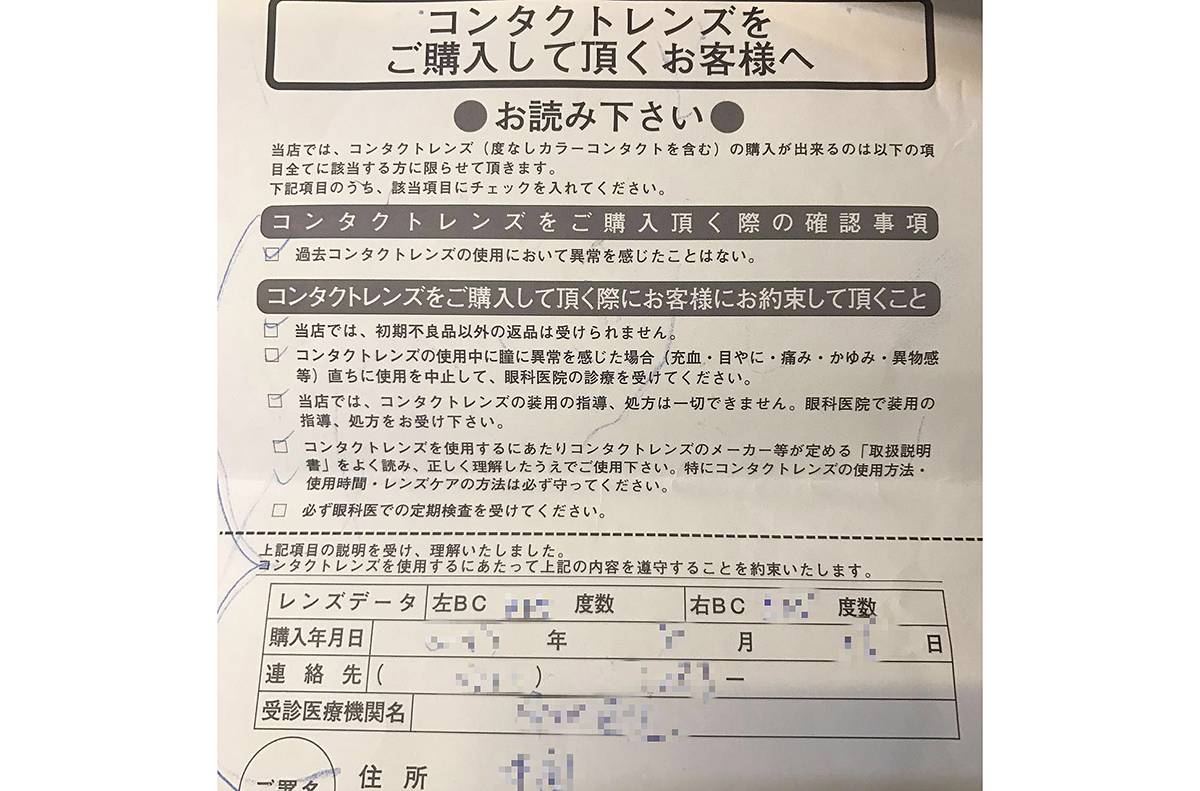 コンタクトレンズを
ご購入して頂くお客様へ
●お読み下さい●
当店では、コンタクトレンズ（度なしカラーコンタクトを含む）の購入が出来るのは以下の項
目全てに該当する方に限らせて頂きます。
下記項目のうち、該当項目にチェックを入れてください。
コンタクトレンズをご購入頂く際の確認事項
過去コンタクトレンズの使用において異常を感じたことはない。
コンタクトレンズをご購入して頂く際にお客様にお約束して頂くこと
当店では、初期不良品以外の返品は受けられません。
コンタクトレンズの使用中に瞳に異常を感じた場合（充血・目やに・痛み・かゆみ・異物感
等）直ちに使用を中止して、眼科医院の診療を受けてください。
当店では、コンタクトレンズの装用の指導、処方は一切できません。眼科医院で装用の
指導、処方をお受け下さい。
コンタクトレンズを使用するにあたりコンタクトレンズのメーカー等が定める「取扱説明
書」をよく読み、正しく理解したうえでご使用下さい。特にコンタクトレンズの使用方法・
使用時間・レンズケアの方法は必ず守ってください。
必ず眼科医での定期検査を受けてください。
上記項目の説明を受け、理解いたしました。
コンタクトレンズを使用するにあたって上記の内容を遵守することを約束いたします。
レンズデータ 左BC 度数 右BC 度数
購入年月日 年 月 日
連絡先 ( ) ー
受診医療機関名
ご署名 住所